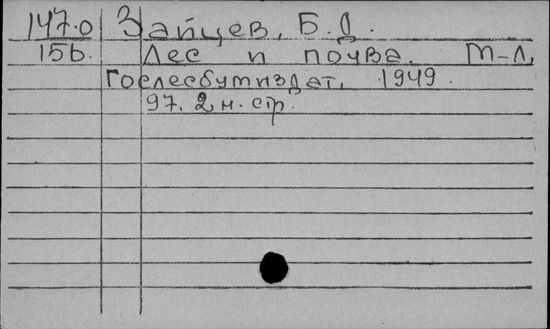 147.0 Зайцев, Б. Д.
156. Лес и почва. М-Л,
Гослесбумиздат, 1949.
97. 2 н. стр.